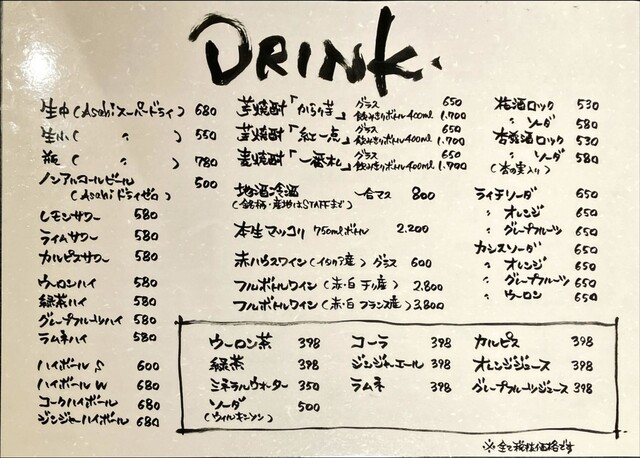 DRINK.
生中(Asahiスーパードライ) 680
生小( 〃 ) 550
瓶( 〃 ) 780
ノンアルコールビール 500
(Asahiドライゼロ)
レモンサワー 580
ライムサワー 580
カルピスサワー 580
ウーロンハイ 580
緑茶ハイ 580
グレープフルーツハイ 580
ラムネハイ 580
ハイボール S 600
ハイボール W 680
コークハイボール 680
ジンジャーハイボール 680
芋焼酎「からり芋」 グラス 650
飲みきりボトル400ml 1,700
芋焼酎「紅一点」 グラス 650
飲みきりボトル400ml 1,700
麦焼酎「一番札」 グラス 650
飲みきりボトル400ml 1,700
地酒冷酒 一合マス 800
(銘柄・産地はSTAFFまで)
本生マッコリ 750mlボトル 2,200
赤ハウスワイン(イタリア産) グラス 600
フルボトルワイン(赤・白 チリ産) 2,800
フルボトルワイン(赤・白 フランス産) 3,800
梅酒ロック 530
〃 ソーダ 580
杏露酒ロック 530
〃 ソーダ 580
(杏の実入り)
ライチソーダ 650
〃 オレンジ 650
〃 グレープフルーツ 650
カシスソーダ 650
〃 オレンジ 650
〃 グレープフルーツ 650
〃 ウーロン 650
ウーロン茶 398
緑茶 398
ミネラルウォーター 350
ソーダ 500
(ウィルキンソン)
コーラ 398
ジンジャエール 398
ラムネ 398
カルピス 398
オレンジジュース 398
グレープフルーツジュース 398
※全て税抜価格です